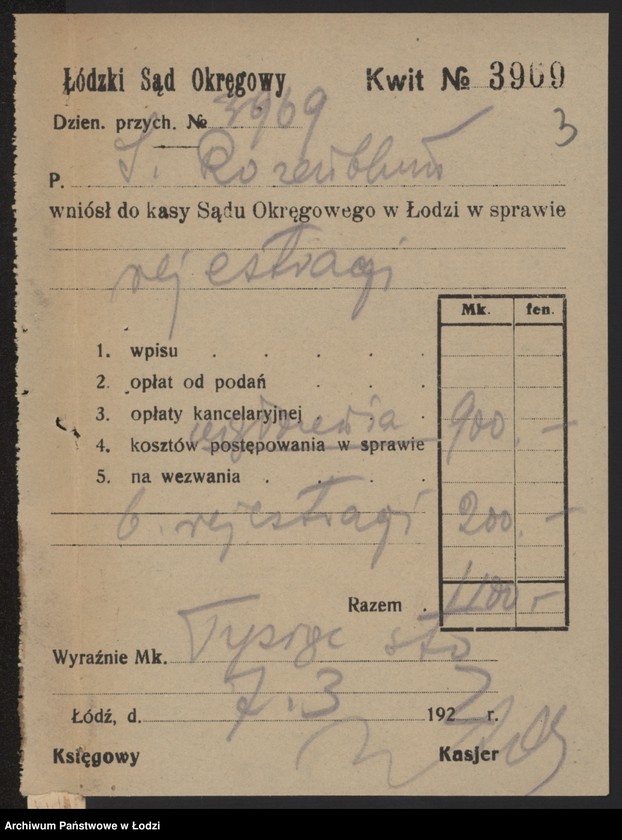 Łódzki Sąd Okręgowy Kwit № 3969
Dzien. przych. № 3969
3
P. S. Rozenblum
wniósł do kasy Sądu Okręgowego w Łodzi w sprawie
rejestracji
Mk. fen.
1. wpisu
2. opłat od podań
3. opłaty kancelaryjnej
4. kosztów postępowania w sprawie 900.—
5. na wezwania
6. rejestracji 200.—
Razem 1100,—
Wyraźnie Mk. Tysiąc sto
Łódź, d. 7.3 1922 r.
Księgowy Kasjer
Archiwum Państwowe w Łodzi